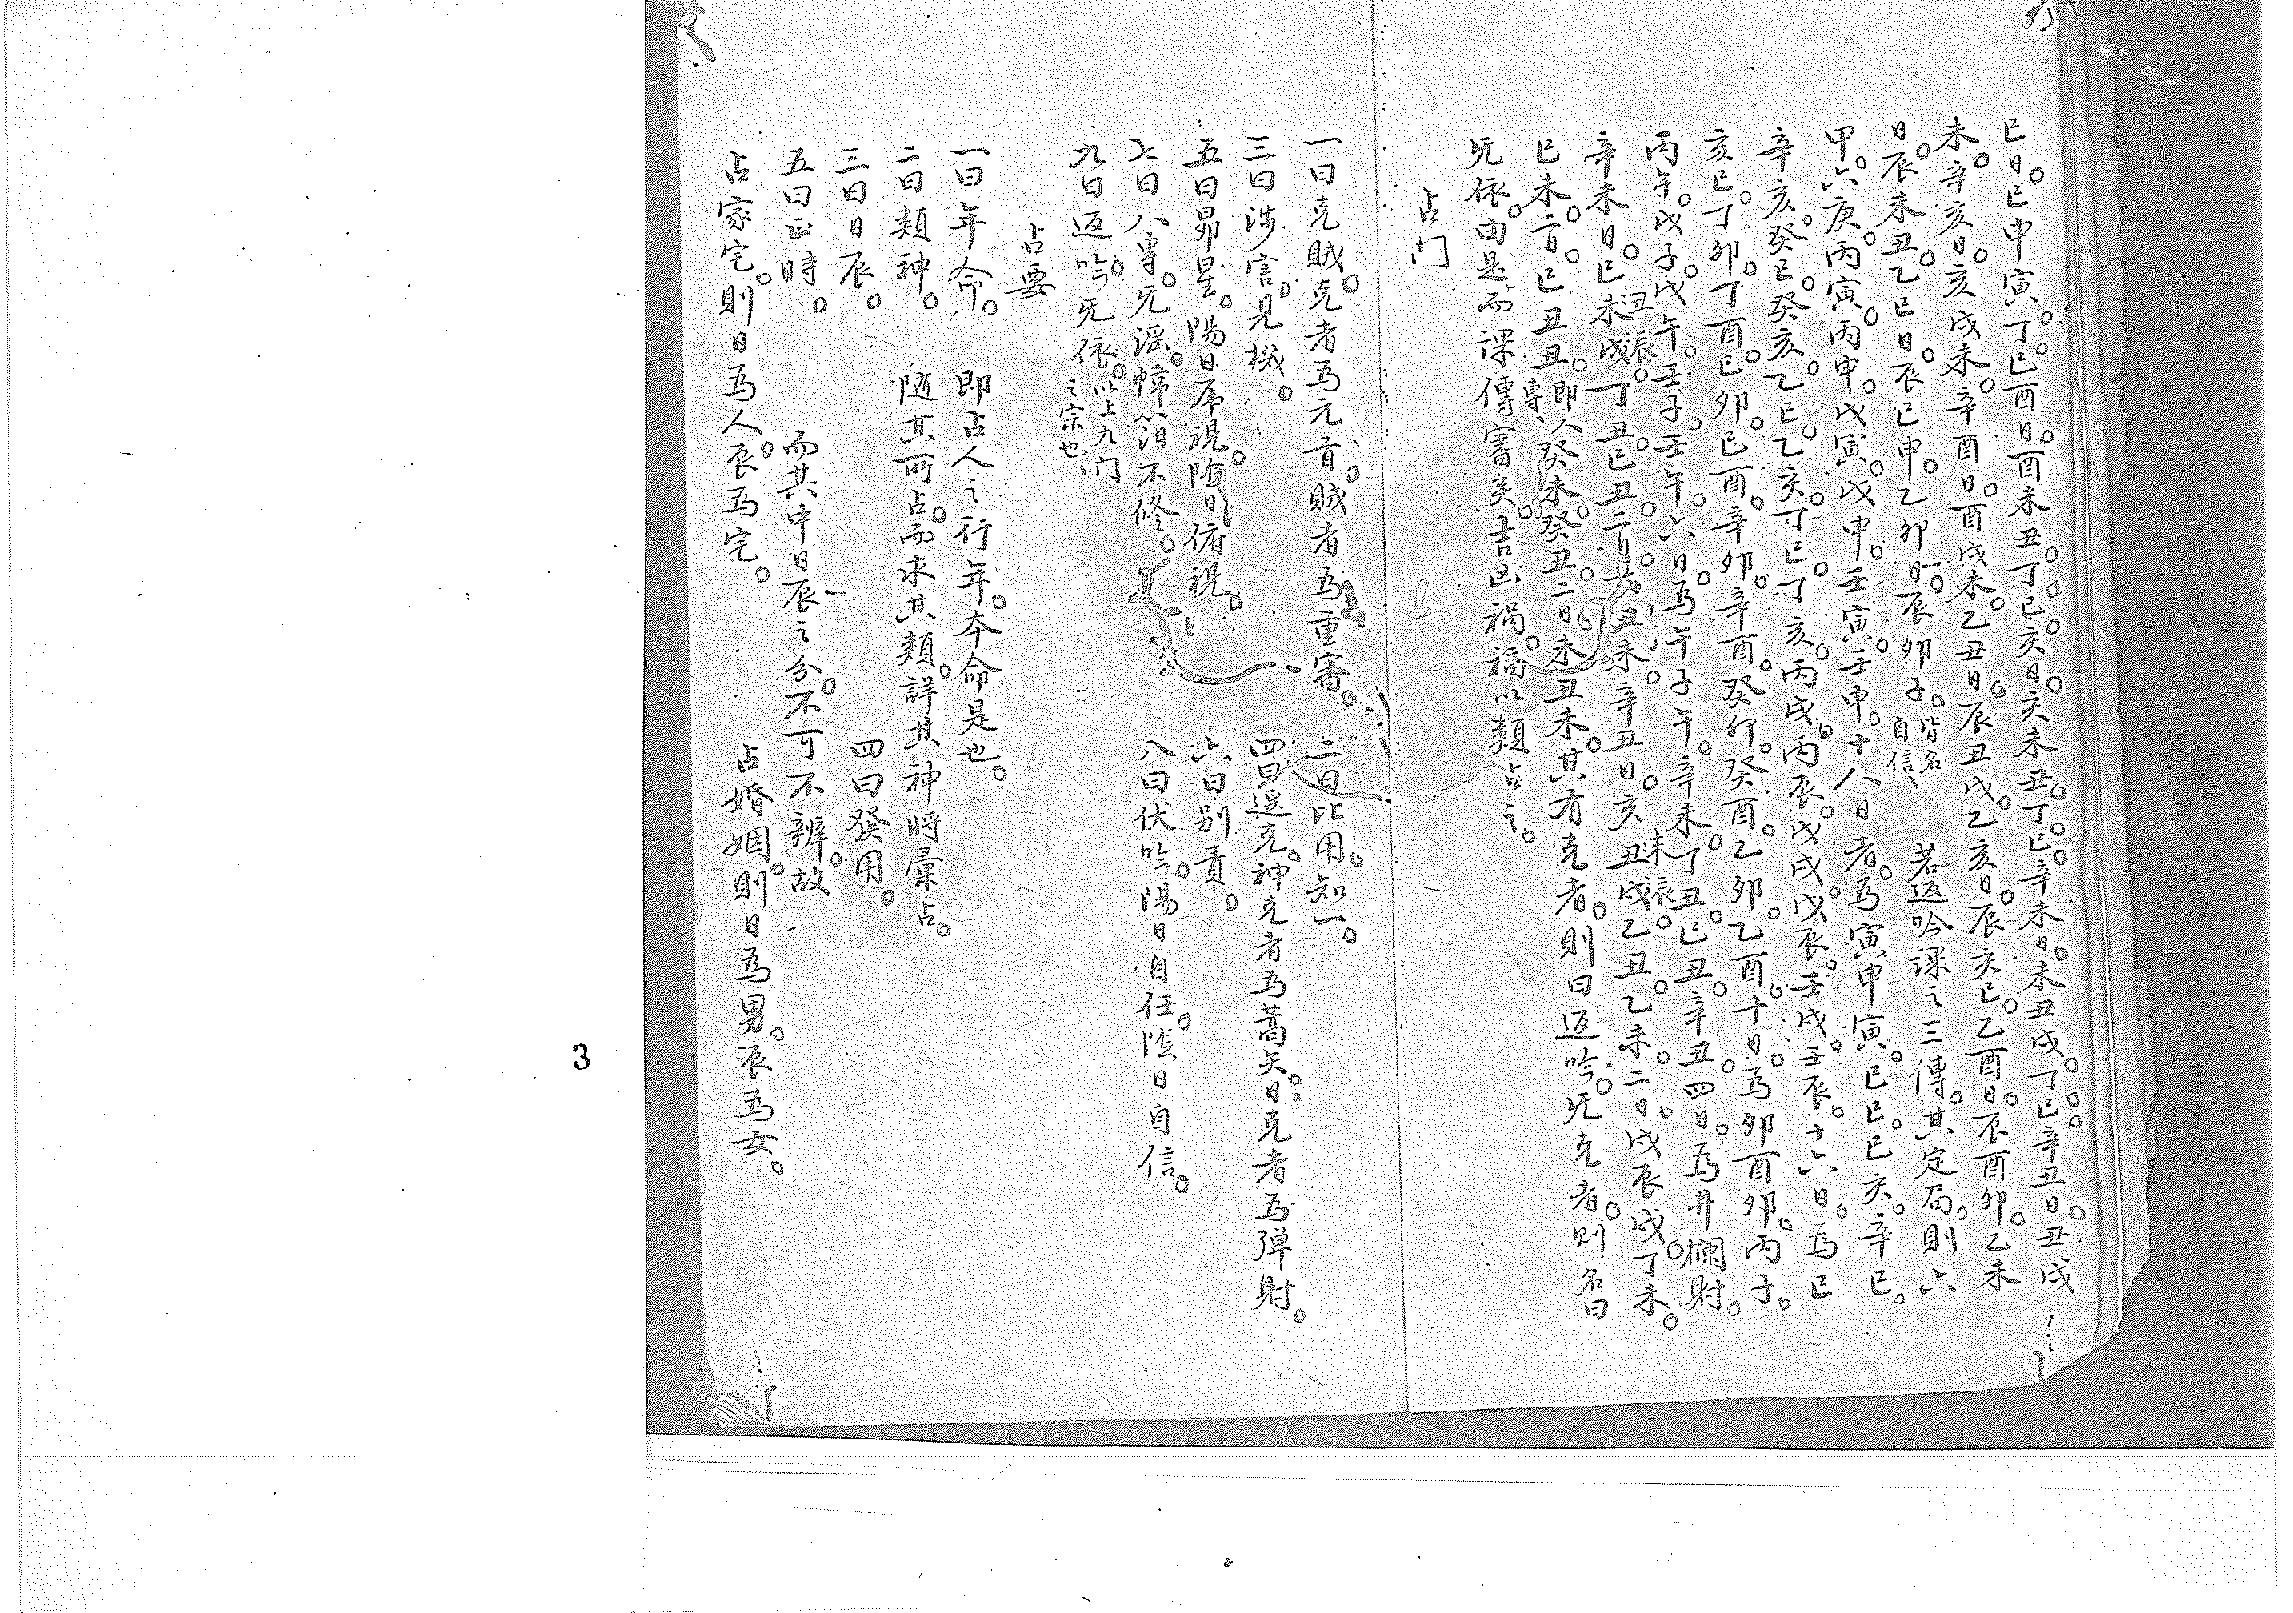 巳日。巳申寅。丁巳酉日。酉未丑。丁巳亥日。亥未丑。丁巳辛未日。未丑戌。丁巳辛丑日。丑戌
未。辛亥日。亥戌未。辛酉日。酉戌未。乙丑日。辰丑戌。乙亥日。辰亥巳。乙酉日。辰酉卯。乙未
日。辰未丑。乙巳日。辰巳申。乙卯日。辰卯子。皆名自信 若返吟課之三傳。其定局。則六
甲。六庚。丙寅。丙申。戊寅。戊申。壬寅。壬申。十八日者。為寅申寅。巳巳。巳亥。辛巳。
辛亥。癸巳。癸亥。乙巳。乙亥。丁巳。丁亥。丙戌。丙辰。戊戌。戊辰。壬戌。壬辰。十六日。為巳
亥巳。丁卯。丁酉。巳卯。巳酉。辛卯。辛酉。癸卯。癸酉。乙卯。乙酉。十日。為卯酉卯。丙子。
丙午。戊子。戊午。壬子。壬午。六日。為午子午。辛未。丁丑。巳丑。辛丑。四日。為井欄射。
辛未日。巳未丑戌辰。丁丑。巳丑。二日。丑未。辛丑日。亥丑未戌辰。乙丑。乙未。二日。戌辰戌。丁未。
巳未。二日。巳丑丑。即八專 癸未。癸丑。二日。未丑未。其有克者。則曰返吟。旡克者。則名曰
旡依。由是而課傳審矣。吉凶禍福。以類占之。
占门
一曰克賊。克者為元首。賊者為重審。 二曰比用。知一。
三曰涉害。見機。 四曰遥克。神克者為蒿矢。日克者為彈射。
五曰昴星。陽日虎視。陰日俯視。 六曰别責。
七曰八専。旡滛。幃箔不修。 八曰伏吟。陽日自任。陰日自信。
九曰返吟。旡依。以上九门之宗也
占要
一曰年命。 即占人之行年。本命是也。
二曰類神。 随其所占。而求其類。詳其神時彙占。
三曰日辰。 四曰發用。
五曰正時。 而其中日辰之分。不可不辨。故
占家宅。則日為人。辰為宅。 占婚姻。則日為男。辰為女。
3